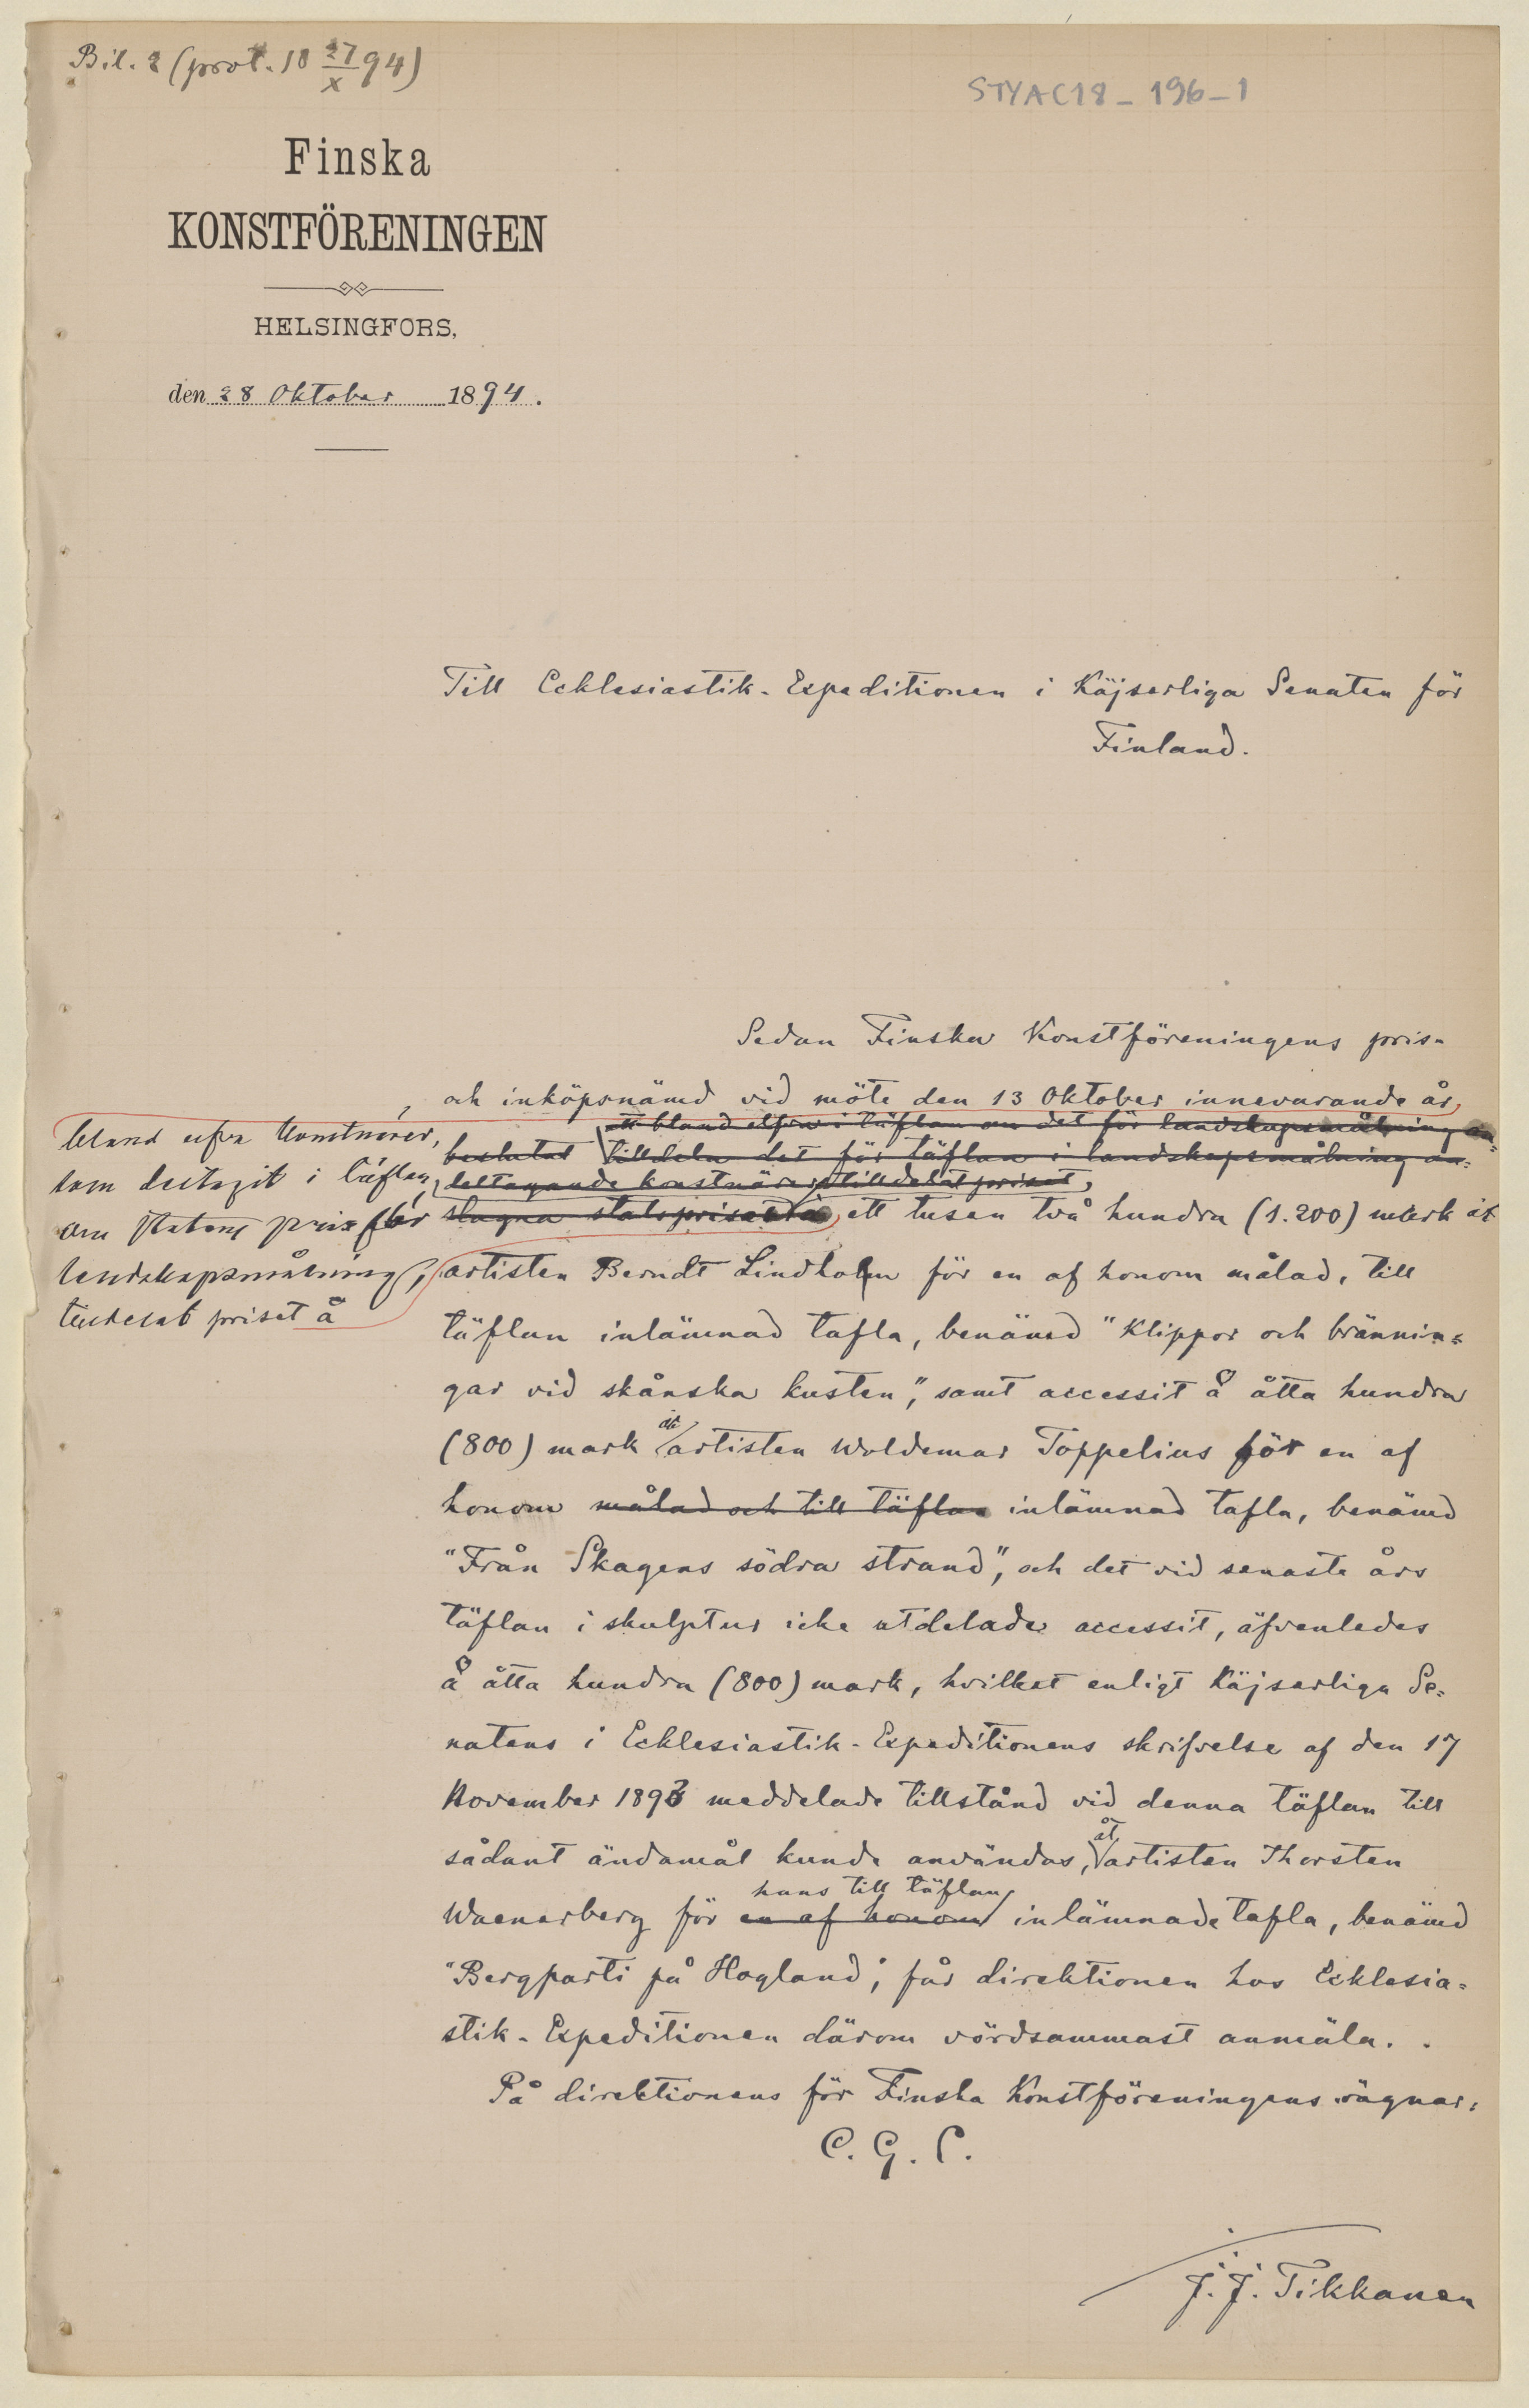 Bil. 2 (prot. 10 27/X 94)
STYAC18_196_1
Finska
KONSTFÖRENINGEN
HELSINGFORS,
den 28 Oktober 1894.
Till Ecklesiastik-Expeditionen i Käjserliga Senaten för
Finland.
Sedan Finska Konstföreningens pris-
och inköpsnämd vid möte den 13 Oktober innevarande år,
bland elfva konstnärer,
som deltagit i täflan
om statens pris för
landskapsmålning,
tilldelat priset å
att bland elfva i täflan om det för landskapsmålning an-
beslutat tilldela det för täflan i landskapsmålning an-
deltagande konstnärer tilldelat priset,
slagna statspriset å ett tusen två hundra (1.200) mark åt
artisten Berndt Lindholm för en af honom målad, till
täflan inlämnad tafla, benämd "Klippor och brännin-
gar vid skånska kusten", samt accessit å åtta hundra
(800) mark åt artisten Woldemar Toppelius för en af
honom målad och till täflan inlämnad tafla, benämd
"Från Skagens södra strand", och det vid senaste års
täflan i skulptur icke utdelade accessit, äfvenledes
å åtta hundra (800) mark, hvilket enligt Käjserliga Se-
natens i Ecklesiastik-Expeditionens skrifvelse af den 17
November 1893 meddelade tillstånd vid denna täflan till
sådant ändamål kunde användas, åt artisten Thorsten
hans till täflan
Waenerberg för en af honom inlämnade tafla, benämd
"Bergparti på Hogland", får direktionen hos Ecklesia-
stik-Expeditionen därom vördsammast anmäla.
På direktionens för Finska Konstföreningens vägnar:
C. G. E.
J. J. Tikkanen